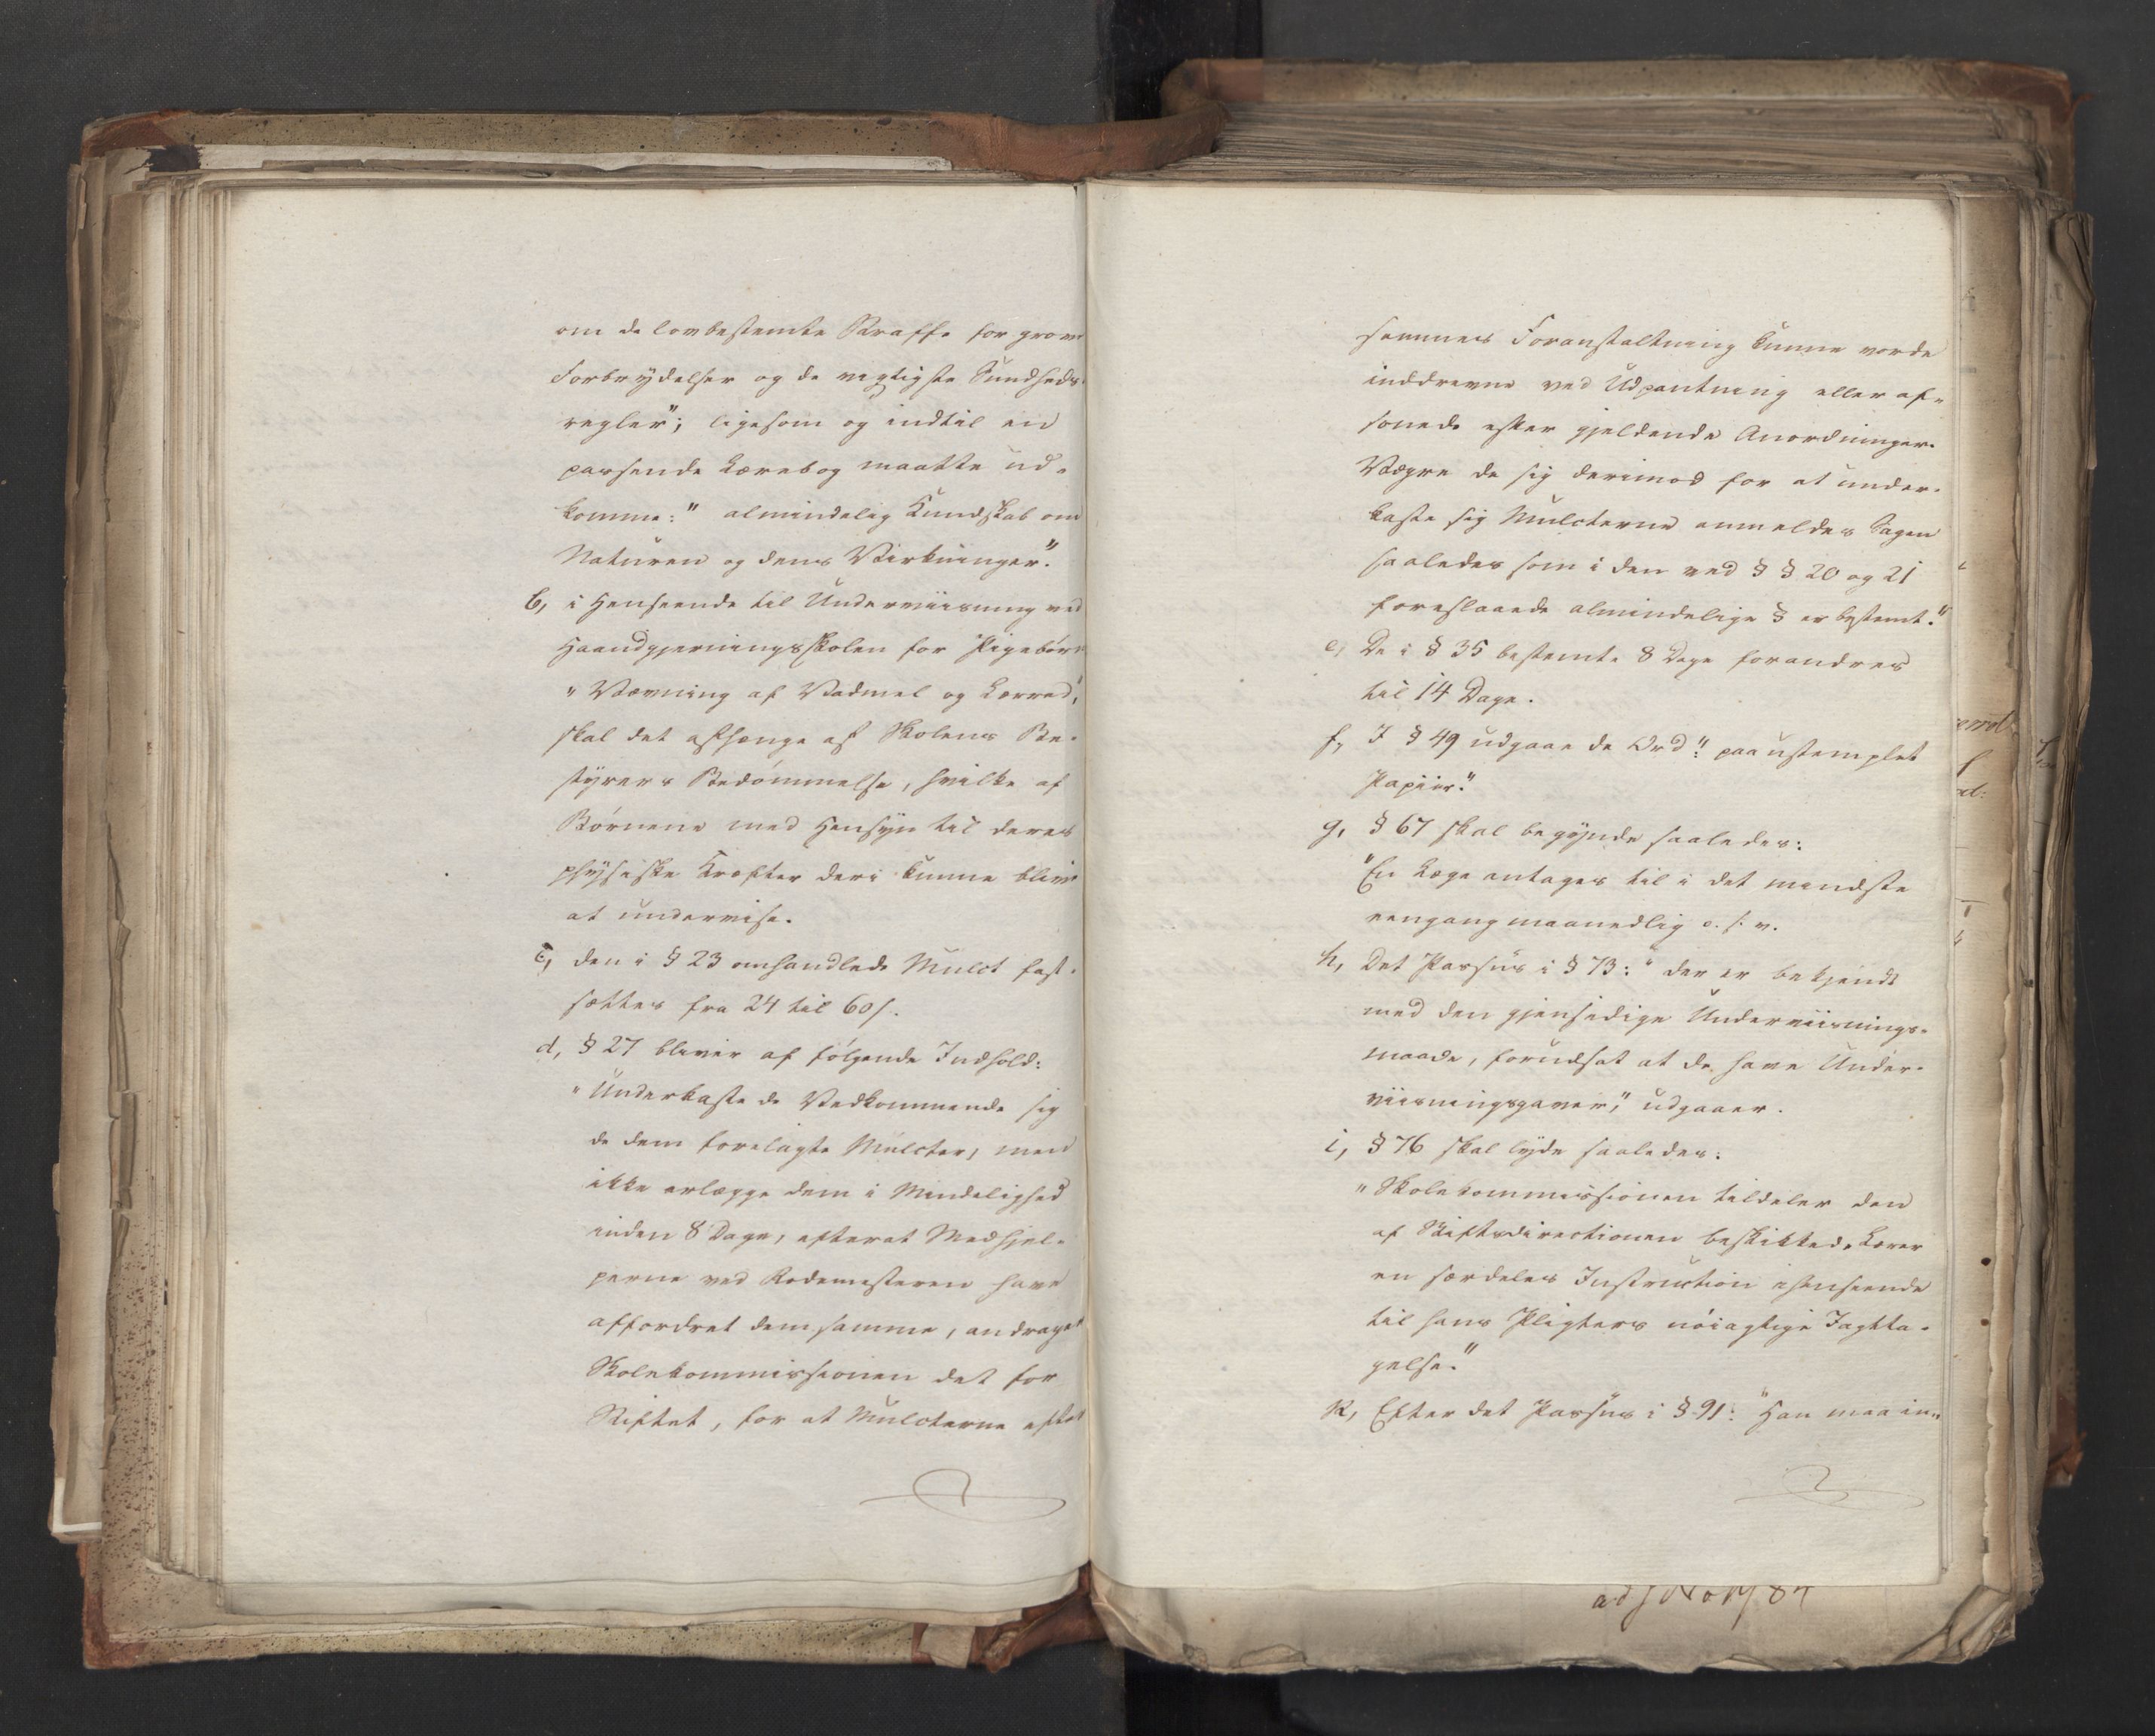 om de lovbestemte Straffe for grove
Forbrydelser og de vigtigste Sundheds-
regler"; ligesom og indtil en
passende Lærebog maatte ud-
komme: "almindelig Kundskab om
Naturen og dens Virkninger."
b, i Henseende til Underviisning ved
Haandgjerningsskolen for Pigebørn
"Vævning af Vadmel og Lærred",
skal det afhænge af Skolens Be-
styrers Bedømmelse, hvilke af
Børnene med Hensyn til deres
physiske Kræfter deri kunne blive
at undervise.
c, den i § 23 omhandlede Mulct fast-
sættes fra 24 til 60 s.
d, § 27 bliver af følgende Indhold:
"Underkaste de Vedkommende sig
de dem forelagte Mulcter, men
ikke erlægge dem i Mindelighed
inden 8 Dage, efterat Medhjel-
perne ved Rodemesteren have
affordret dem samme, andrager
Skolekommissionen det for
Stiftet, for at Mulcterne efter
sammes Foranstaltning kunne vorde
inddrevne ved Udpantning eller af-
sonede efter gjeldende Anordninger.
Vægre de sig derimod for at under-
kaste sig Mulcterne anmeldes Sagen
saaledes som i den ved §§ 20 og 21
foreslaaede almindelige § er bestemt."
e, De i § 35 bestemte 8 Dage forandres
til 14 Dage.
f, I § 49 udgaae de Ord: "paa ustemplet
Papiir."
g, § 67 skal begynde saaledes:
"En Læge antages til i det mindste
eengang maanedlig o. s. v.
h, Det Passus i § 73: "der er bekjendt
med den gjensidige Underviisnings-
maade, forudsat at de have Under-
viisningsgaver," udgaaer.
i, § 76 skal lyde saaledes:
"Skolekommissionen tildeler den
af Stiftsdirectionen beskikkede Lærer
en særdeles Instruction ihenseende
til hans Pligters nøiagtige Iagtta-
gelse."
k, Efter det Passus i § 91: "Han maa in-